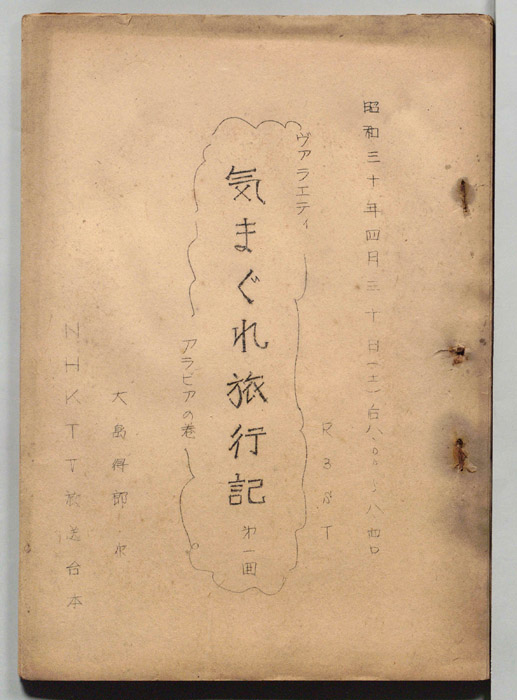 昭和三十年四月三十日(土)后八.〇〇〜八.四〇
ヴァラエティ
気まぐれ旅行記
第一回
アラビアの巻
大島得郎 作
NHKTT放送台本